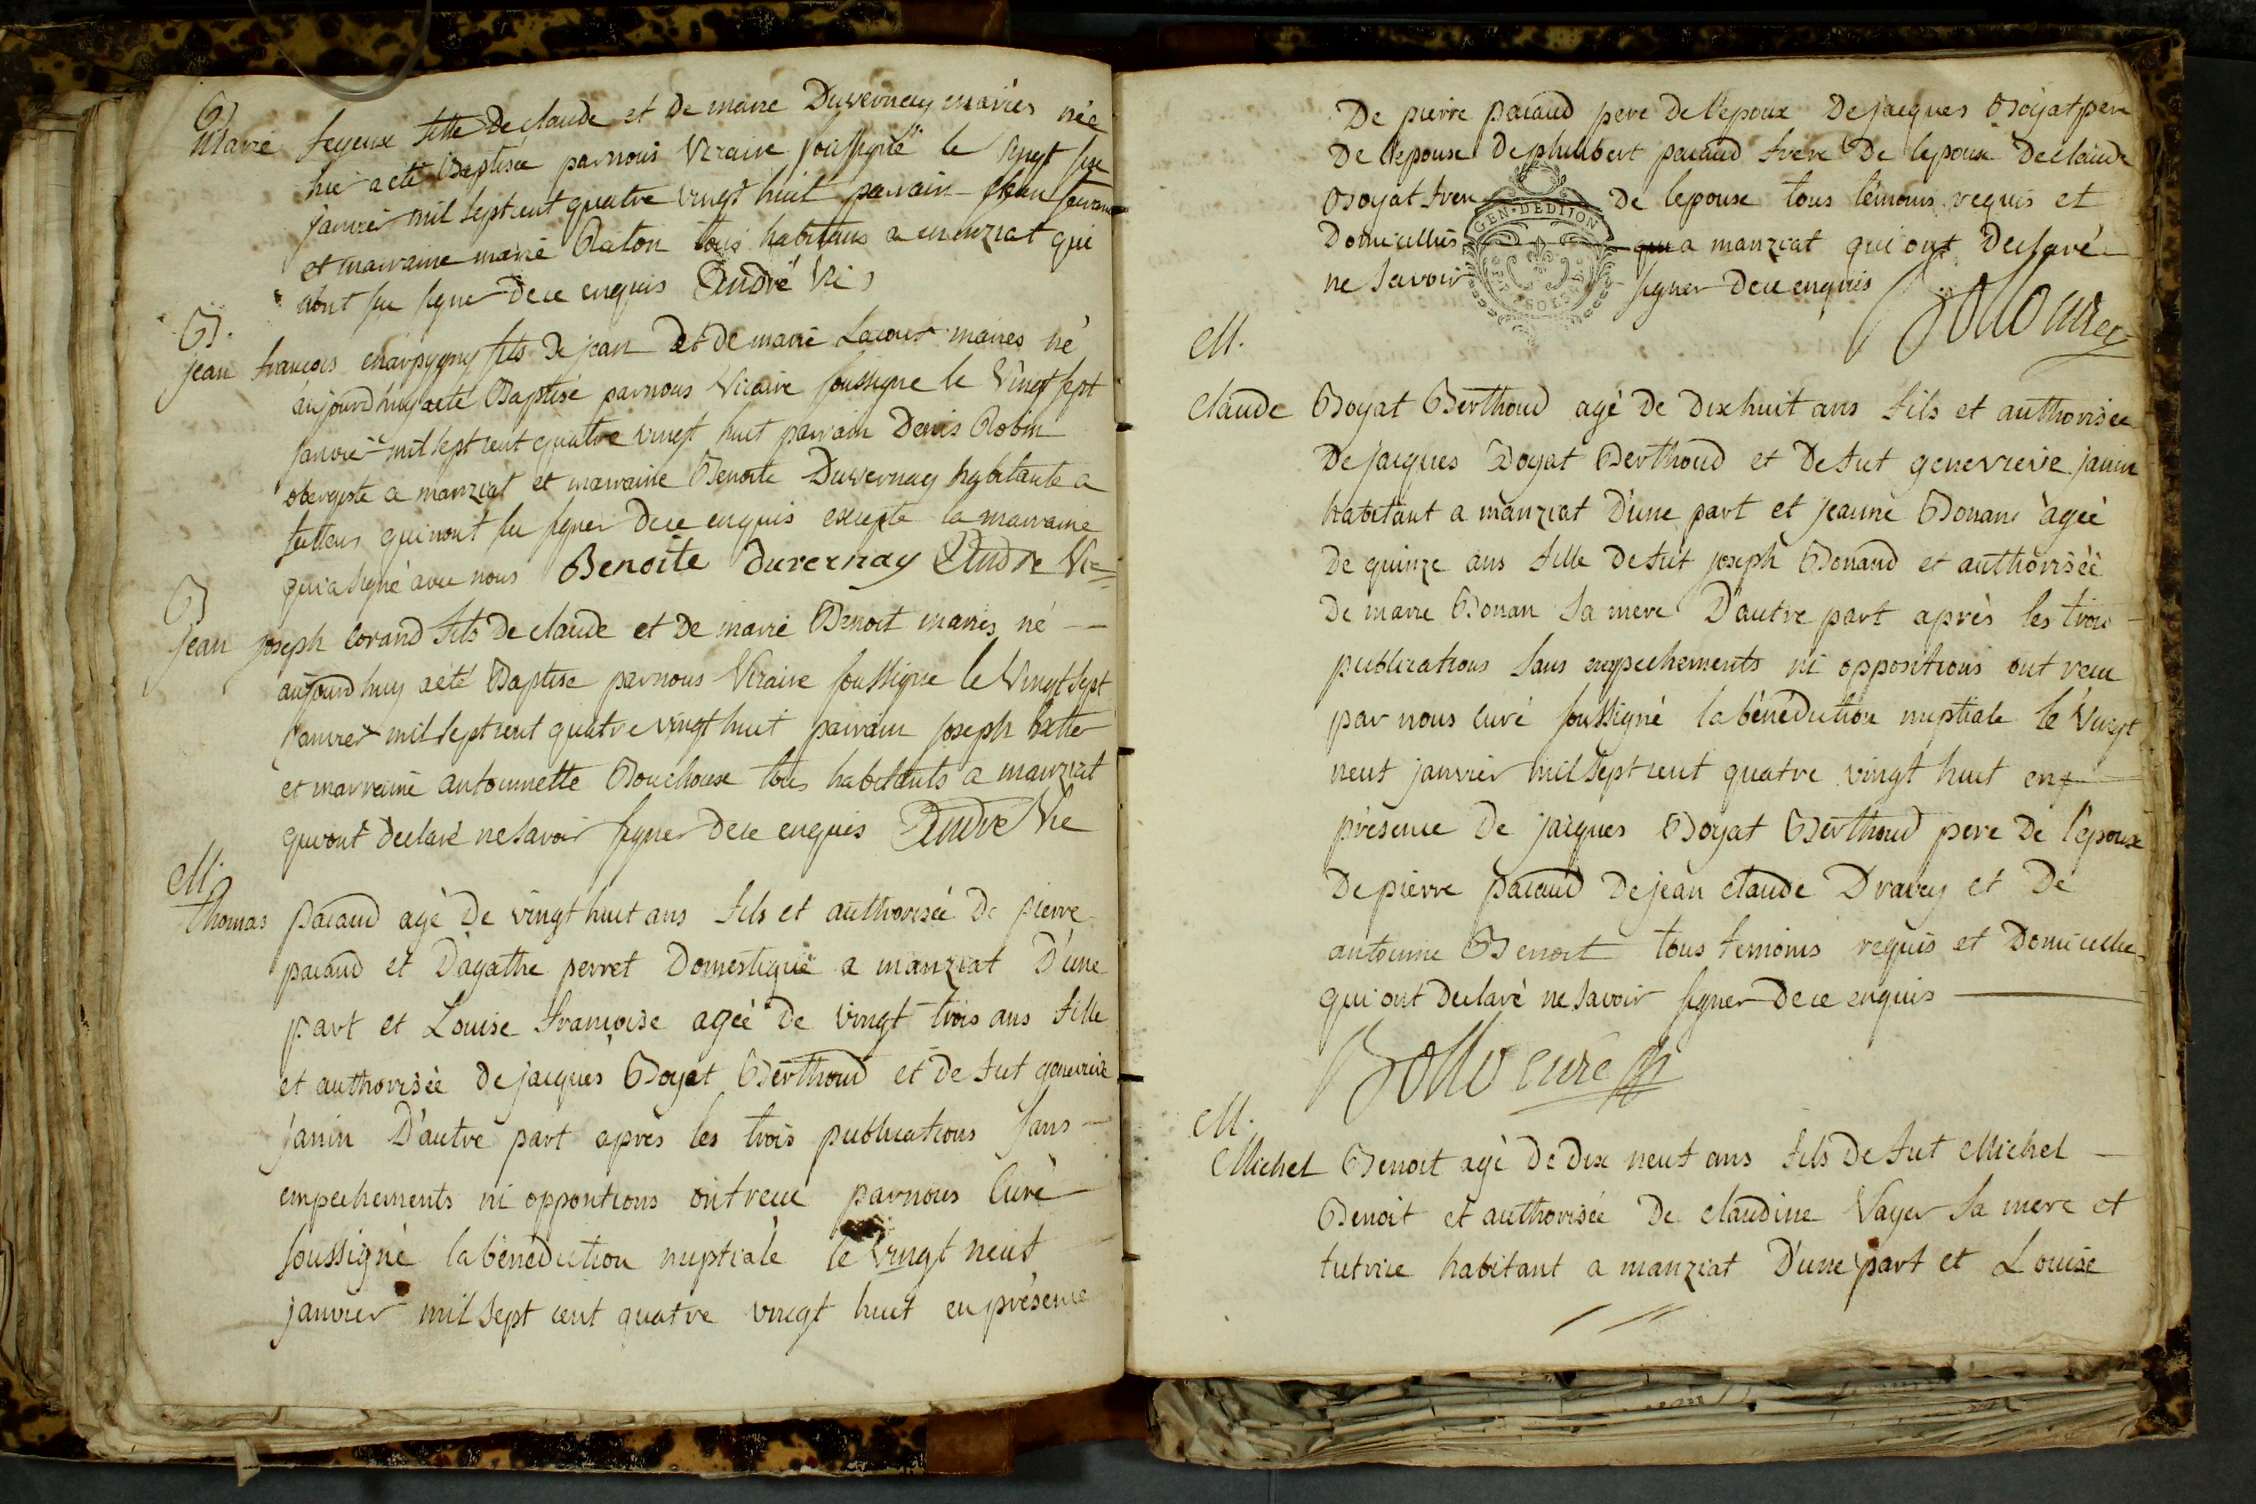 B
Marie feyeux fille de claude et de marie Duvernay mariés née
hier a eté Baptisée par nous Vicaire soussigné le vingt six
janvier mil sept cent quatre vingt huit parrain jean
et marraine marie Raton tous habitans a manziat qui
nont su signer de ce enquis André Vic
B.
jean francois charpygny fils de jean et de marie Lacour mariés né
aujourdhuy a eté Baptisé par nous Vicaire soussigne le Vingt sept
janvier mil sept cent quatre vingt huit parrain Denis Robin
obergiste a manziat et marraine Benoite Duvernay habitante a
qui nont su signer de ce enquis excepte la marraine
qui a signé avec nous Benoite duvernay André Vic
B
jean joseph Corand fils de claude et de marie Benoit mariés né
aujourdhuy a eté Baptise par nous Vicaire soussigne le Vingt sept
janvier mil sept cent quatre vingt huit parrain joseph
et marraine antoinnette Bouchoux tous habitants a manziat
qui ont declaré ne savoir signer de ce enquis André Vic
M.
thomas pacaud agé de vingt huit ans fils et authorisée de pierre
pacaud et D'agathe perret Domestique a manziat D'une
part et Louise francoise agée de vingt trois ans fille
et authorisée de jacques Boyat Berthoud et de fut genevieve
janin D'autre part apres les trois publications sans
empechements ni oppositions ont receu par nous Curé
soussigné la bénédiction nuptiale le vingt neuf
janvier mil sept cent quatre vingt huit en présence
De pierre pacaud pere de l'epoux De jacques Boyat pere
De l'epouse De philibert pacaud frere De lepoux De claude
Boyat frere De lepouse tous témoins requis et
Domicilliés qui a manziat qui ont Declaré
ne savoir signer de ce enquis Bollo curé
GEN·DE DIJON
M.
Claude Boyat Berthoud agé de dix huit ans fils et authorisée
De jacques Boyat Berthoud et De fut genevieve janin
habitant a manziat D'une part et jeanne Bonan agée
De quinze ans fille De fut joseph Bonand et authorisée
De marie Bonan sa mere D'autre part après les trois
publications sans empechements ni oppositions ont receu
par nous curé soussigné la bénédiction nuptiale le Vingt
neuf janvier mil sept cent quatre vingt huit en
présence De jacques Boyat Berthoud pere De l'epoux
De pierre pacaud De jean claude Dravey et De
antoinne Benoit tous temoins requis et Domicillié
qui ont declaré ne savoir signer de ce enquis
Bollo curé
M.
Michel Benoit agé De dix neuf ans fils De fut Michel
Benoit et authorisée De claudine Vayer sa mere et
tutrice habitant a manziat D'une part et Louise